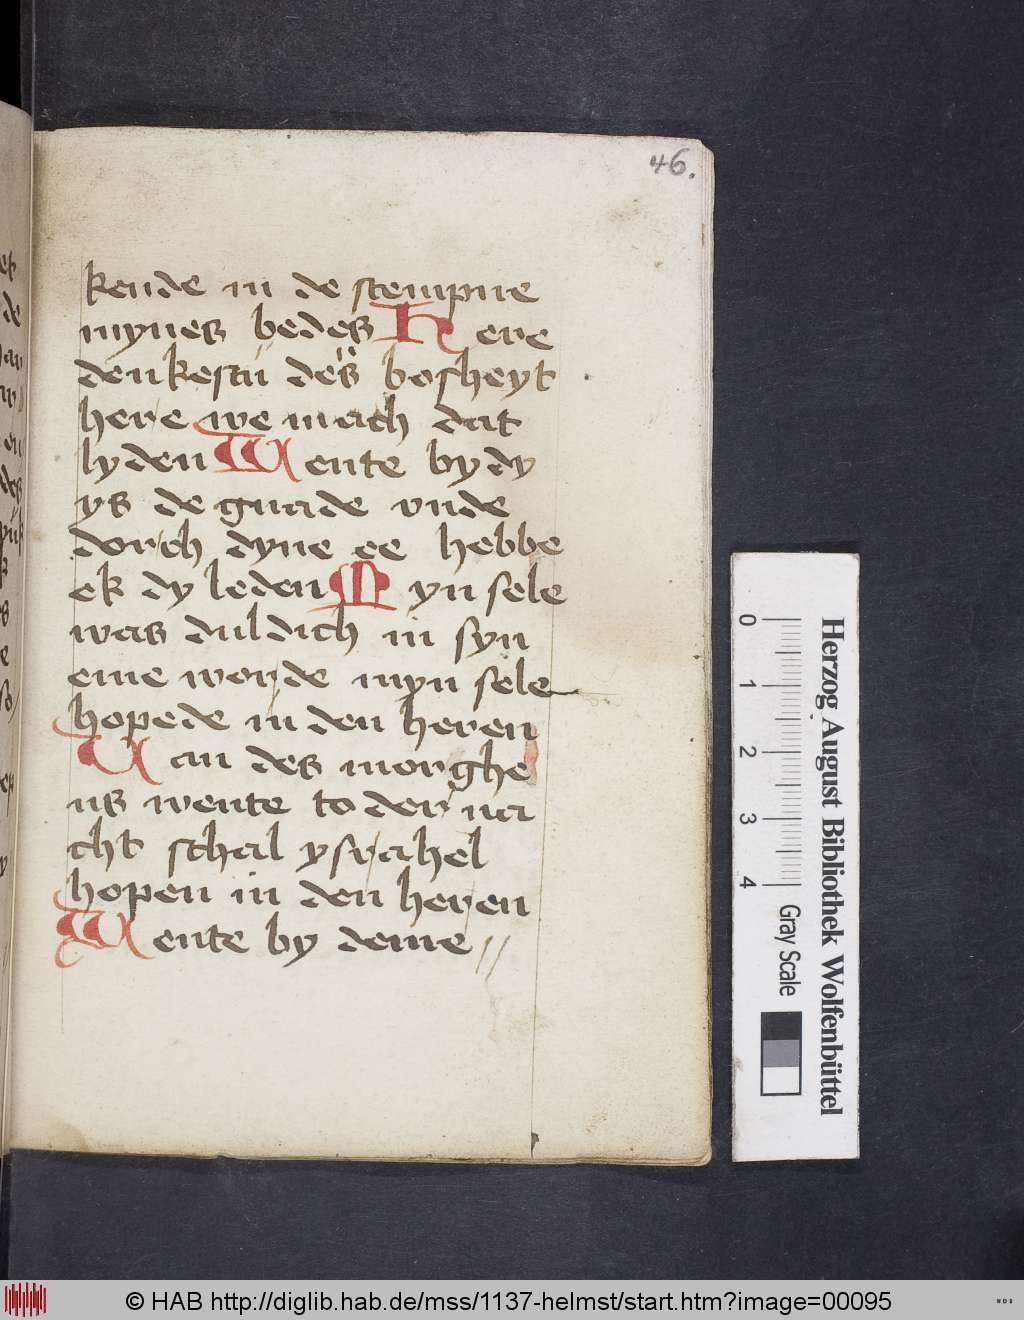 46.
kende in de stempne
mynes bedes Here
denkestu des bosheyt
here we mach dat
lyden Wente by dy
ys de gnade vnde
dorch dyne ee hebbe
ek dy leden Myn sele
was duldich in syn
eme worde myn sele
hopede in den heren
Van des morghe
ns wente to der na
cht schal ysrahel
hopen in den heren
Wente by deme //
0 1 2 3 4
Gray Scale
Herzog August Bibliothek Wolfenbüttel
© HAB http://diglib.hab.de/mss/1137-helmst/start.htm?image=00095